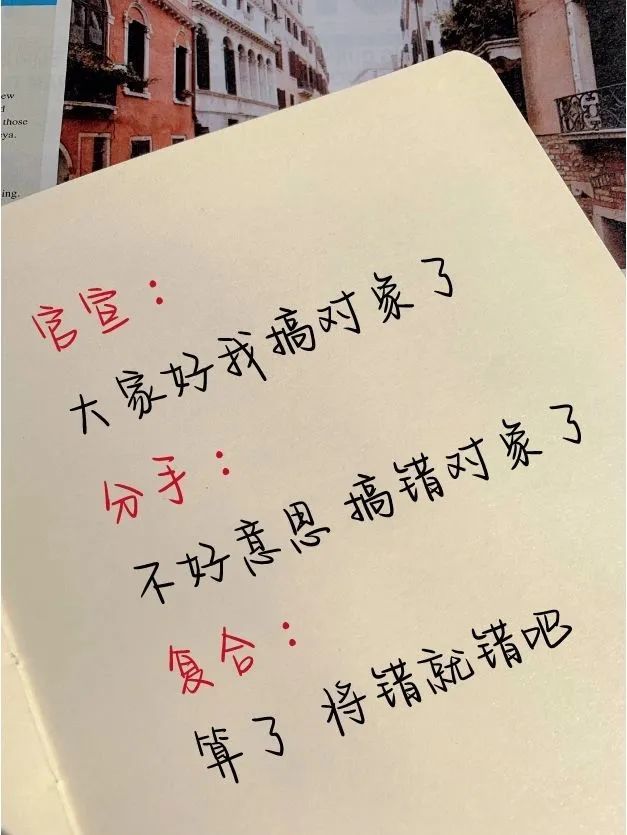 ew
those
ya.
ing.
官宣：
大家好我搞对象了
分手：
不好意思 搞错对象了
复合：
算了 将错就错吧